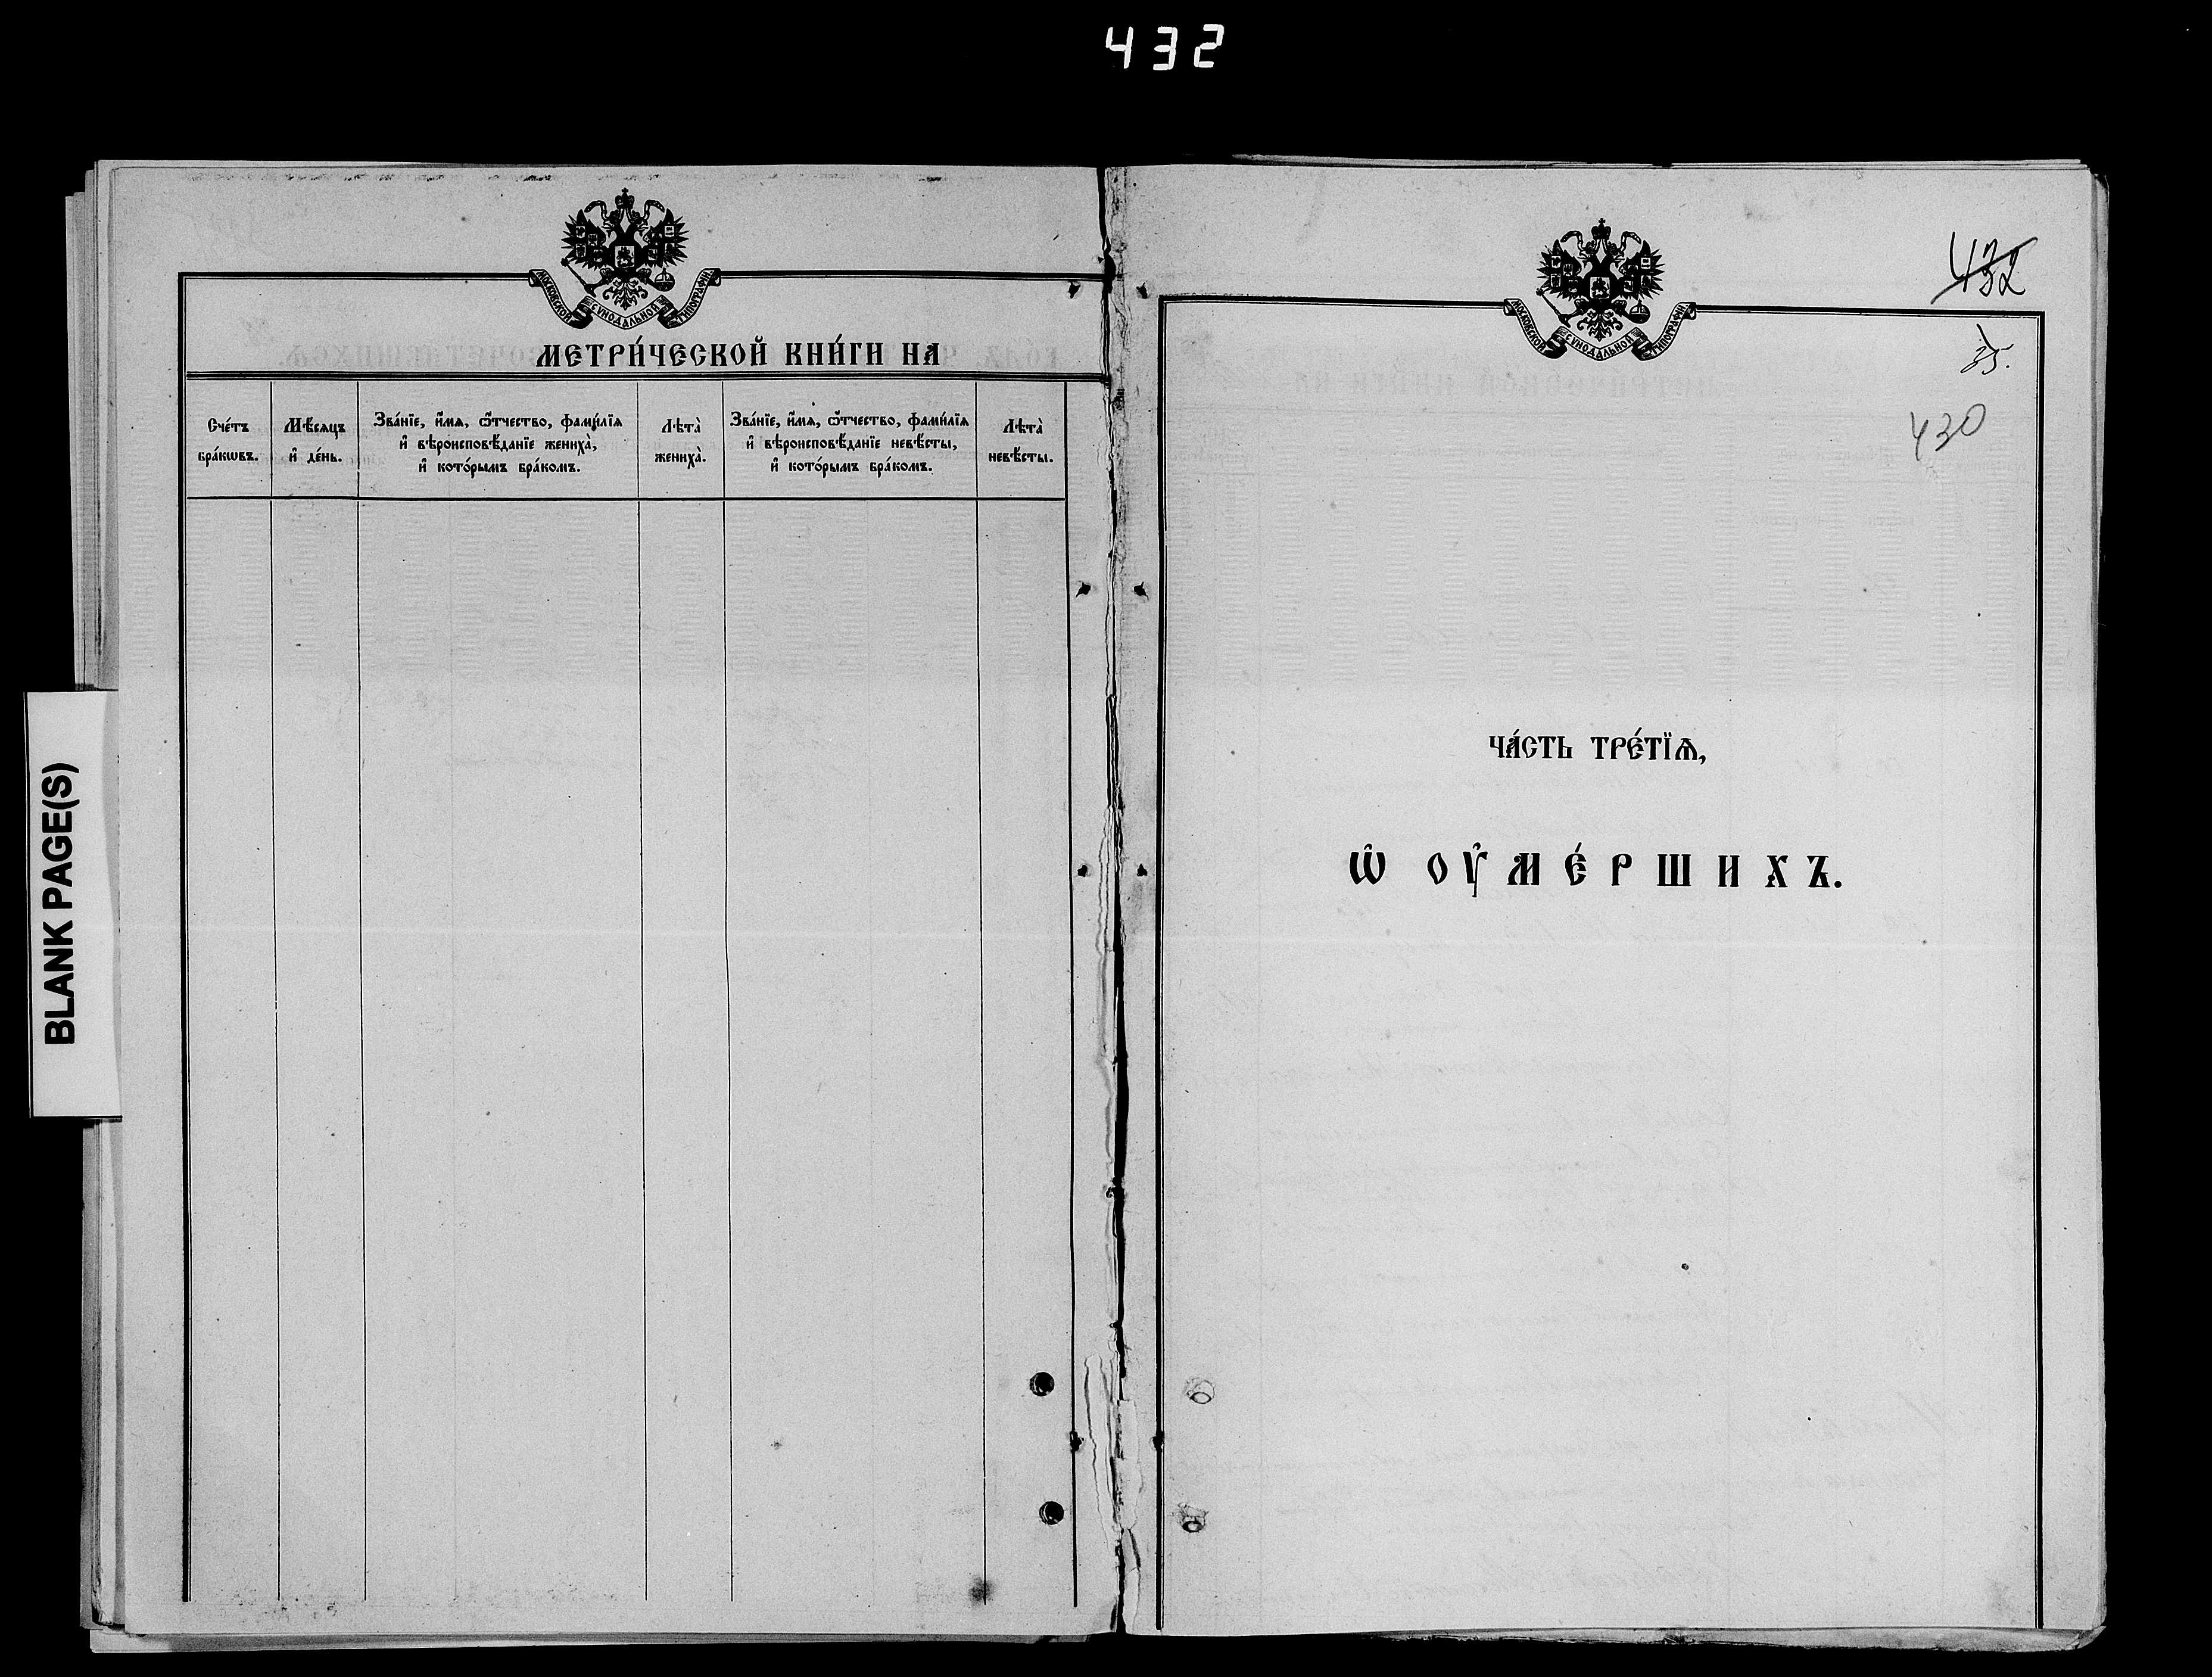 432
BLANK PAGE(S)
МОСКОВСКОЙ СѴНОДАЛЬНОЙ ТИПОГРАФІИ.
МЕТРИ́ЧЕСКОЙ КНИ́ГИ НА
Сче́тъ бра́кѡвъ.
Мѣ́сяцъ и҆ де́нь.
Зва́нїе, и҆́мя, ѻ҆́тчество, фами́лїя
и҆ вѣроисповѣ́данїе жениха̀,
и҆ кото́рымъ бра́комъ.
Лѣта̀ жениха̀.
Зва́нїе, и҆́мя, ѻ҆́тчество, фами́лїя
и҆ вѣроисповѣ́данїе невѣ́сты,
и҆ кото́рымъ бра́комъ.
Лѣта̀ невѣ́сты.
МОСКОВСКОЙ СѴНОДАЛЬНОЙ ТИПОГРАФІИ.
432
430
ЧА́СТЬ ТРЕ́ТЇѦ,
Ѡ҆ ОУ҆МЕ́РШИХЪ.